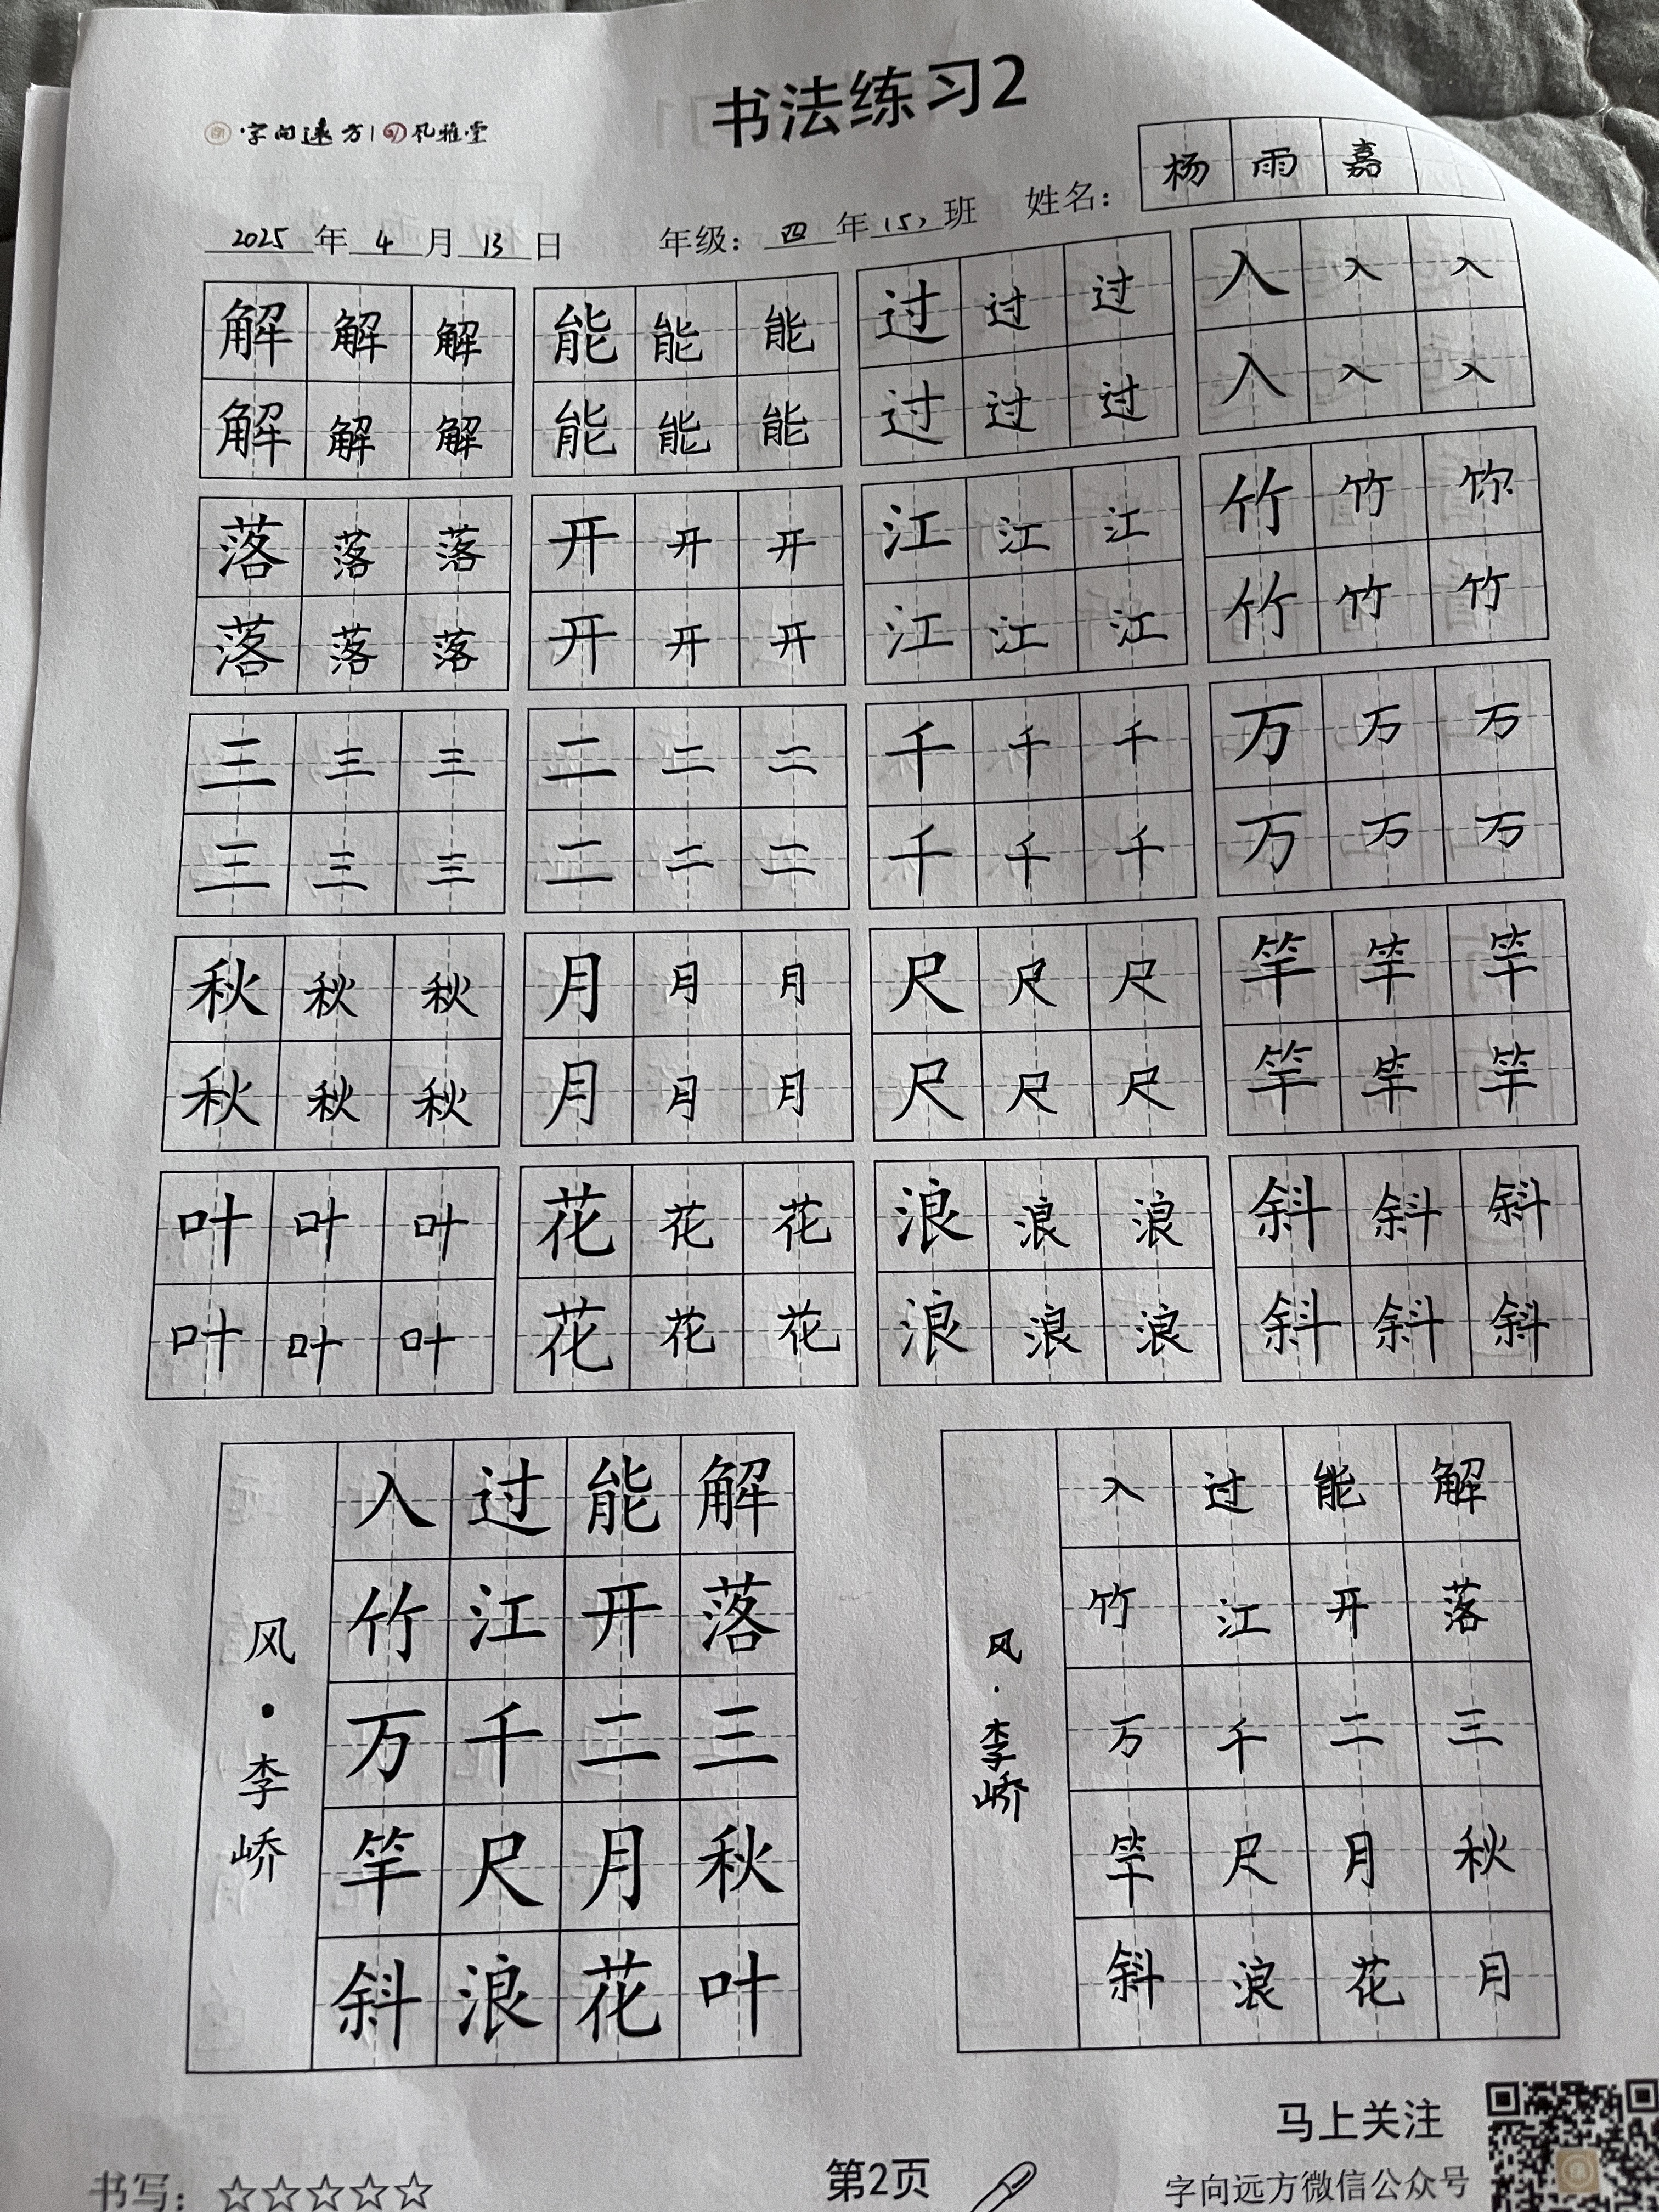 字向远方 | 风雅堂
书法练习2
2025年4月13日 年级：四年(5)班 姓名：杨雨嘉
解解解 能能能 过过过 入入入
解解解 能能能 过过过 入入入
落落落 开开开 江江江 竹竹
落落落 开开开 江江江 竹竹竹
三三三 二二二 千千千 万万万
三三三 二二二 千千千 万万万
秋秋秋 月月月 尺尺尺 竿竿竿
秋秋秋 月月月 尺尺尺 竿竿竿
叶叶叶 花花花 浪浪浪 斜斜斜
叶叶叶 花花花 浪浪浪 斜斜斜
解落三秋叶
能开二月花
过江千尺浪
入竹万竿斜
风·李峤
解落三秋月
能开二月花
过江千尺浪
入竹万竿斜
风·李峤
马上关注
书写：☆☆☆☆☆
第2页
字向远方微信公众号